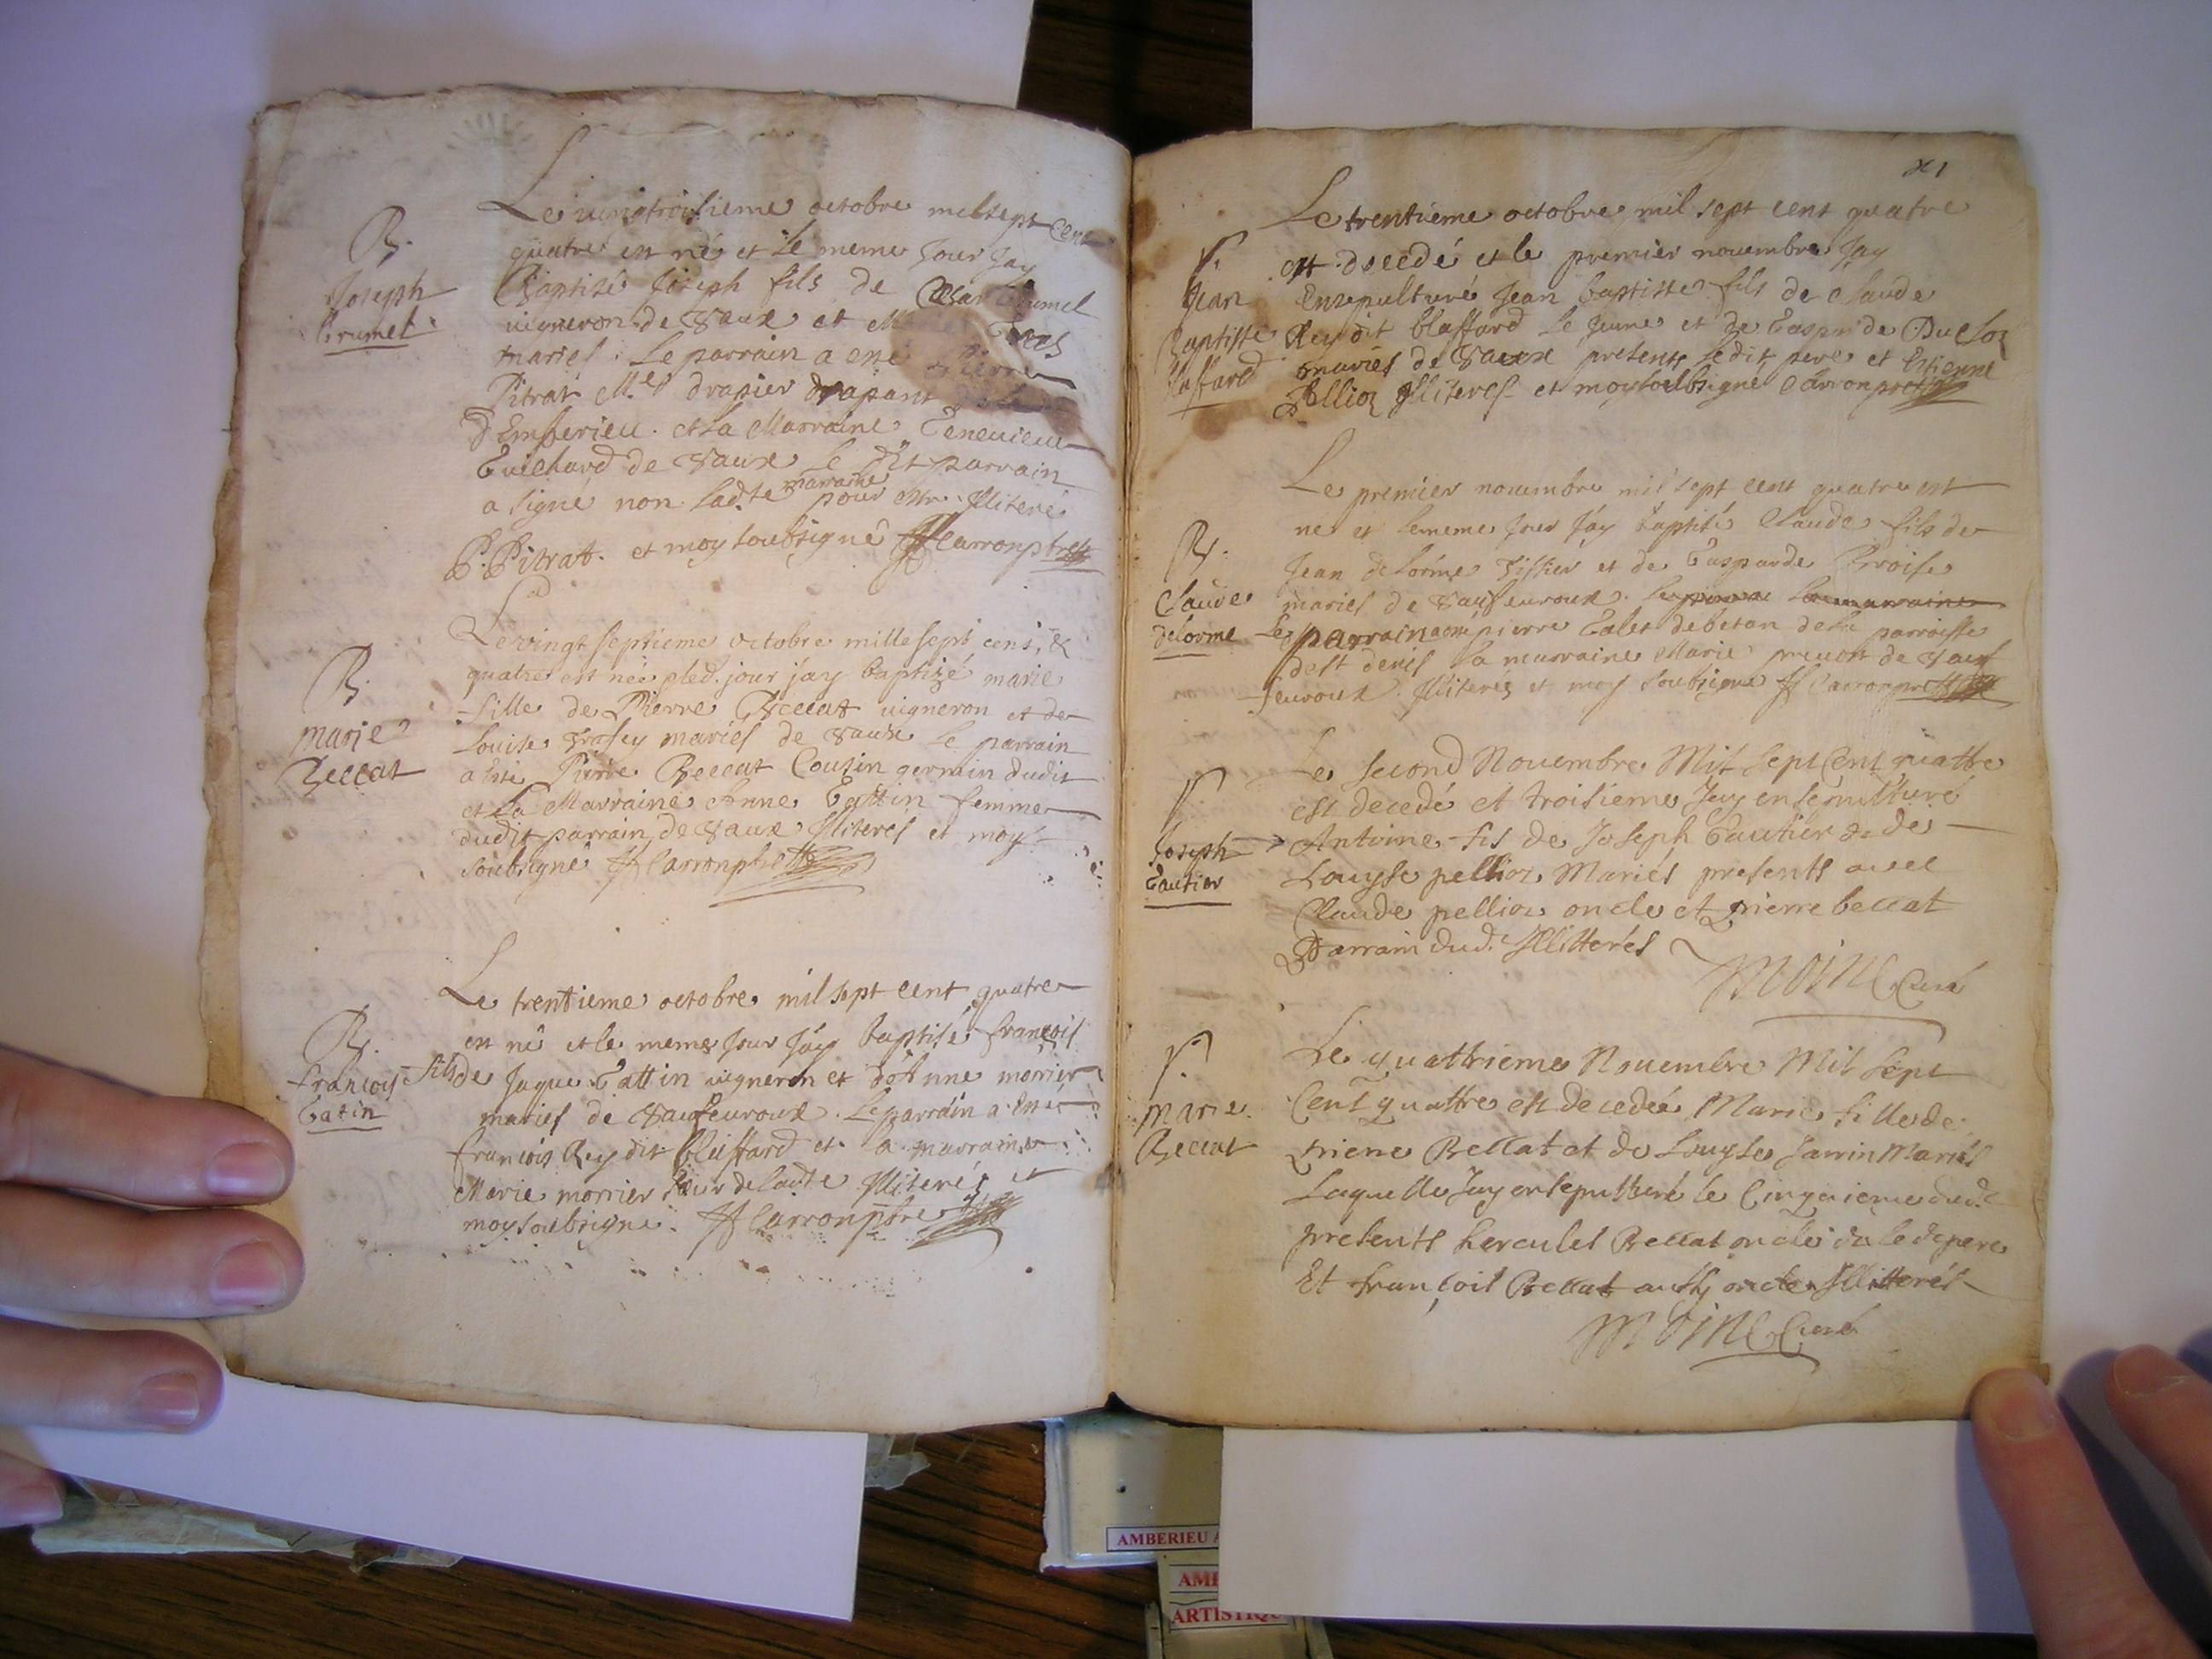 Le vingtroisieme octobre mil sept cent
quatre est né et le meme jour jay
B.
Joseph
Brumet
Baptisé Joseph fils de Cesar Brumet
vigneron de Vaux et
mariés. Le parrain a esté Pierre
Pitrat Me drapier drapant
d'Emberieu. et la Marraine Genevieve
Guichard de Vaux le dt parrain
a signé non ladte marraine pour estre Illiteré
P. Pitrat. et moy soubsigné Carron ptre
Le vingt septieme octobre mille sept cens &
quatre est née & led. jour j'ay baptizé marie
B.
marie
Beccat
fille de Pierre Beccat vigneron et de
Louise mariés de Vaux le parrain
a esté Pierre Beccat Cousin germain dudit
et La Marraine Anne Gattin femme
dudit parrain de Vaux Illiterés et moy
soubsigné Carron ptre
Le trentieme octobre mil sept cent quatre
est né et le meme jour j'ay baptisé francois
B.
francois
Gatin
fils de Jaque Gattin vigneron et d'Anne morrier
mariés de Vaufevroux. Le parrain a esté
francois Rey dit blaffard et la marraine
Marie morrier sœur de ladte Illiterés et
moy soubsigné. Carron ptre
XI
Le trentieme octobre mil sept cent quatre
est decedé et le premier novembre Jay
S.
Jean
Baptiste
blaffard
Ensepulturé Jean baptiste fils de Claude
Rey dit blaffard le Jeune et de Gasparde Ducloz
mariés de Vaux presents ledit pere et Estienne
Pellioz Illiterés et moy soubsigné Carron ptre
Le premier novembre mil sept cent quatre est
né et le meme jour j'ay baptisé Claude fils de
B.
Claude
delorme
Jean delorme Tissier et de Gasparde Broise
mariés de Vaufevroux. la marraine
Le parrain a esté pierre Galet de betan de la parroisse
de st denis la marraine Marie prevost de Vauf
fevroux. Illiterés et moy soubsigné Carron ptre
Le second Novembre Mil sept Cent quattre
est decedé et troisieme Jay ensepulturé
S.
Joseph
Gautier
Antoine fils de Joseph Gautier & de
Louyse pellioz Mariés presents avec
Claude pellioz oncle et pierre beccat
Parrain dud. Illitterés
Moine Curé
Le quattrieme Novembre Mil Sept
S.
Marie
Beccat
Cent quattre est decedée Marie fille de
pierre Beccat et de Louyse Jarrin Mariés
Laquelle Jay ensepulturé le Cinquieme dud.
presents hercules Beccat oncle du led. pere
Et francois Beccat aussy oncle Illitterés
Moine Curé
AMBERIEU A
AMB
ARTISTIQU